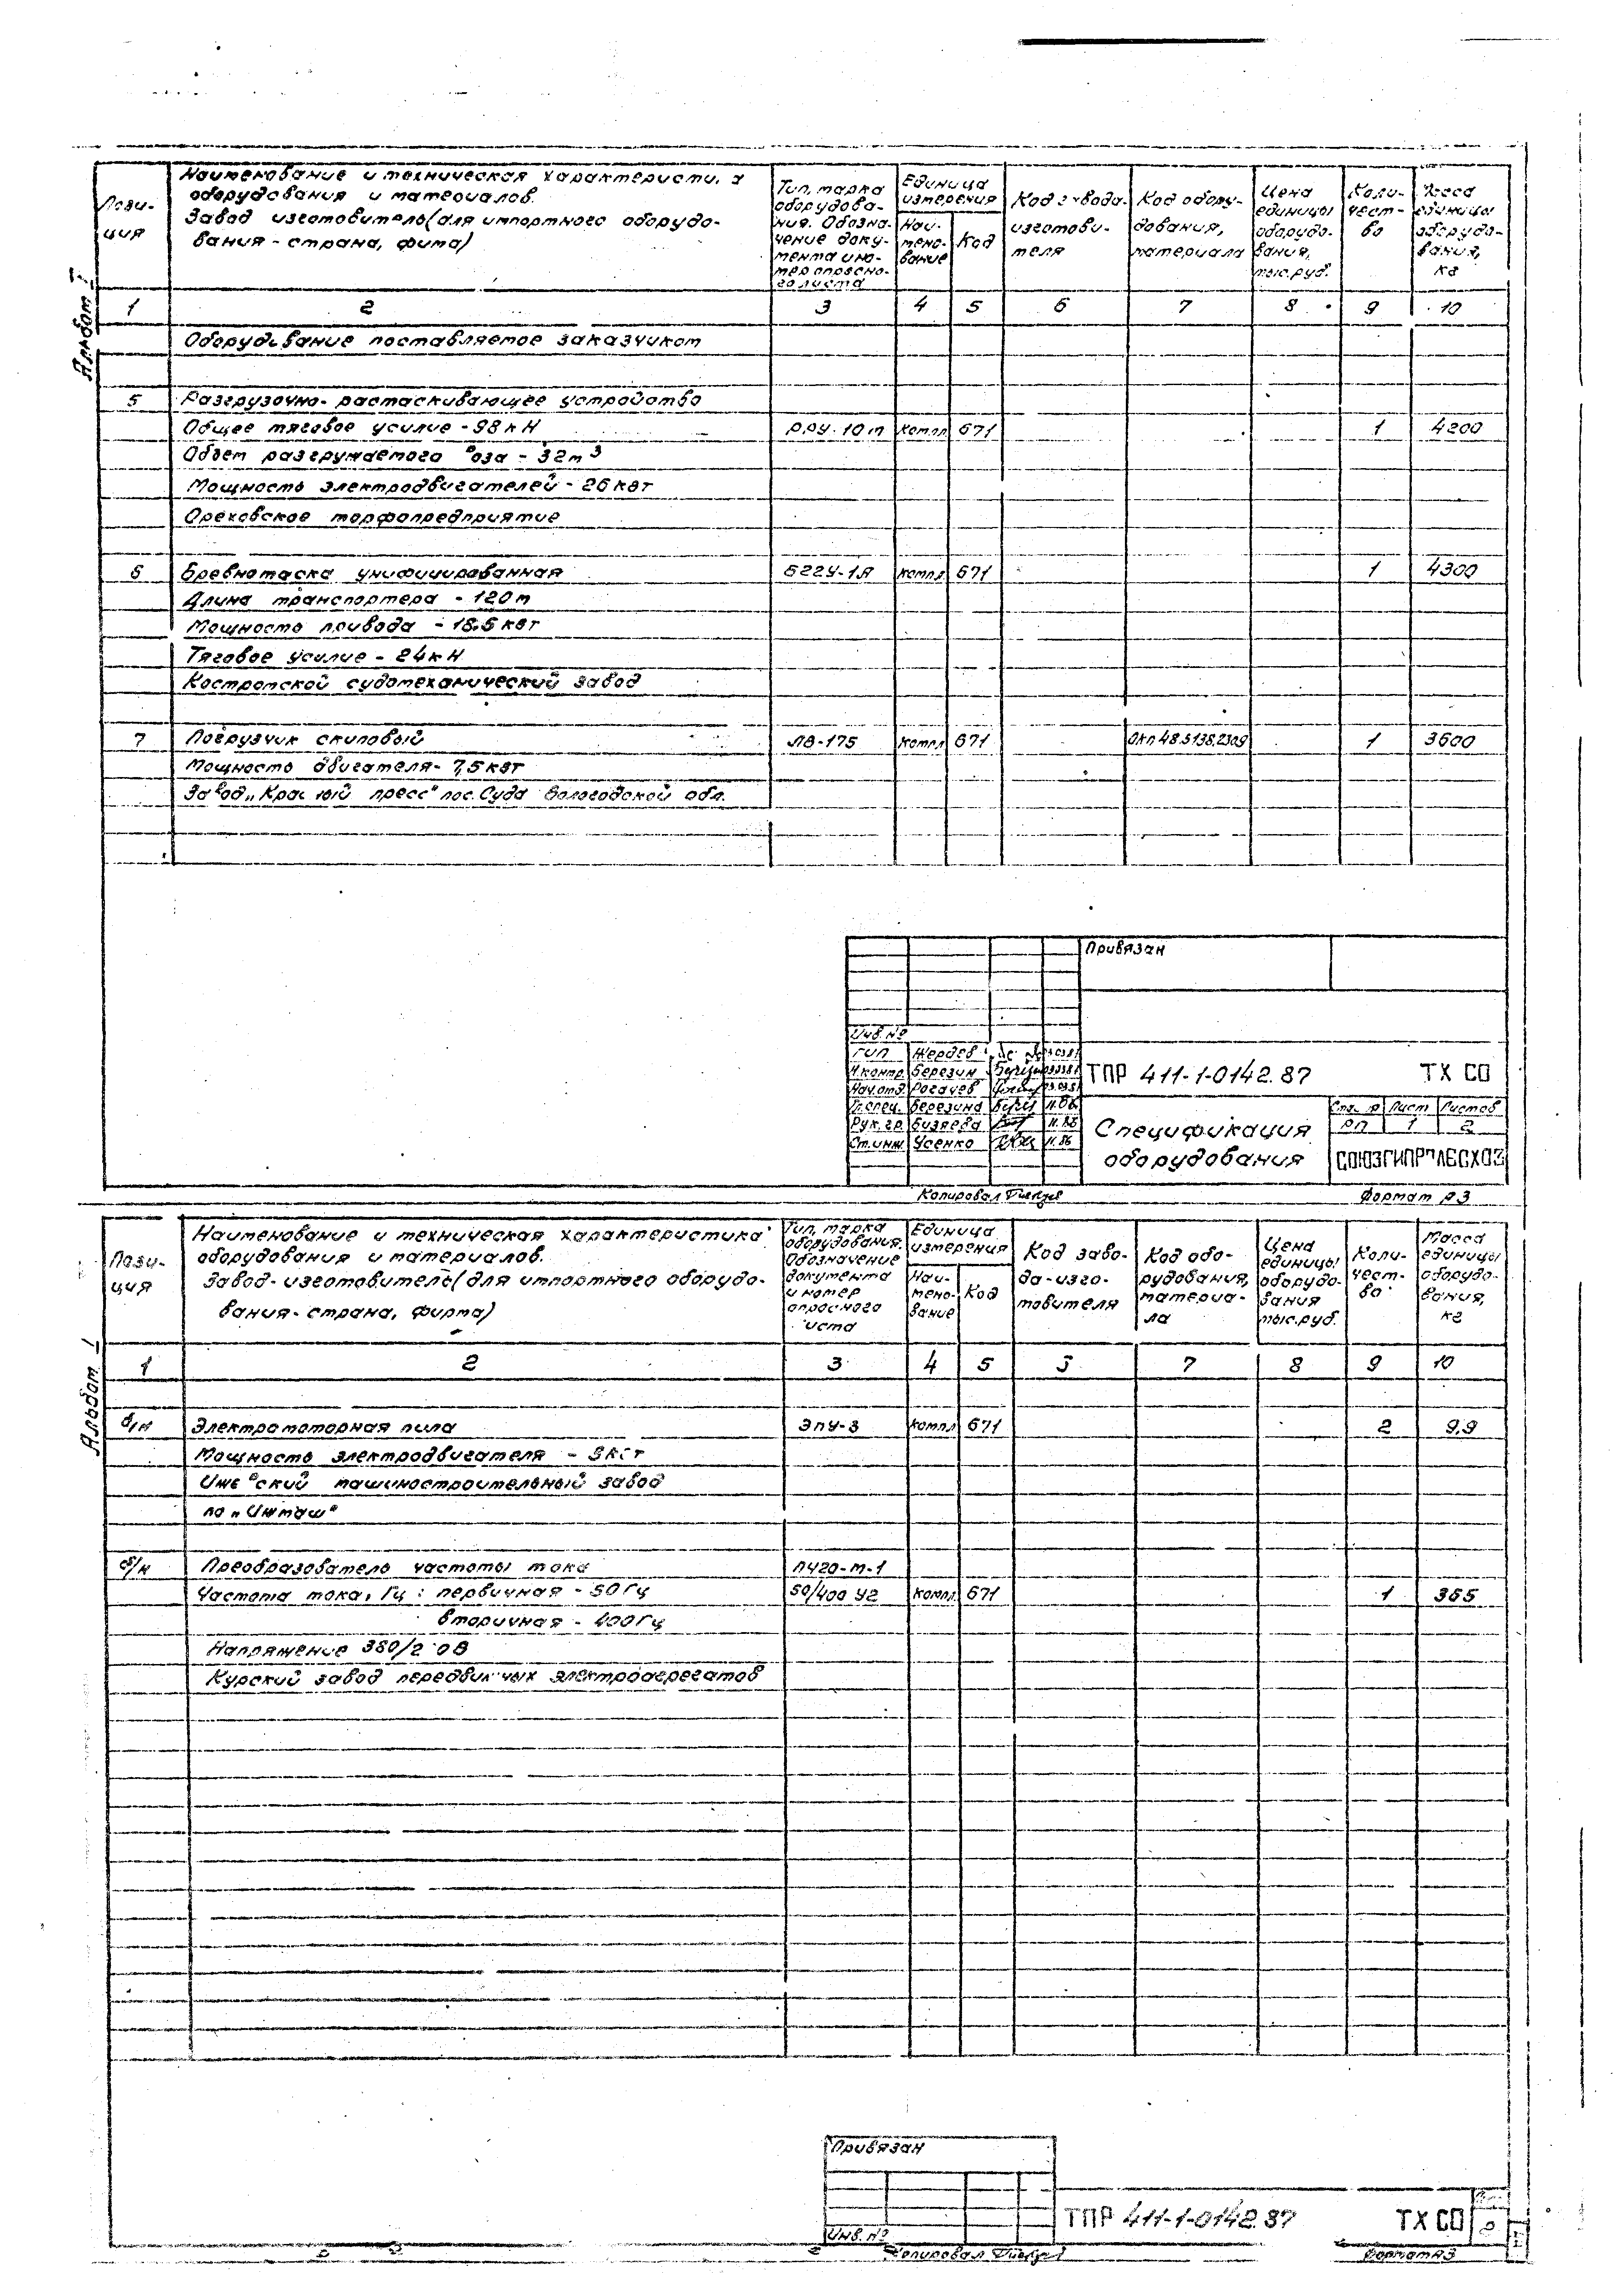 Альбом I
Пози-
ция
Наименование и техническая характеристи
оборудования и материалов.
Завод изготовитель (для импортного оборудо-
вания - страна, фима)
Тип, марка
оборудова-
ния. Обозна-
чение доку-
мента и но-
мер опросно-
го листа
Единица
измерения
Наи-
мено-
вание
Код
Код завода-
изготови-
теля
Код обору-
дования,
материала
Цена
единицы
оборудо-
вания,
тыс.руб.
Коли-
чест-
во
Масса
единицы
оборудо-
вания,
кг
1 2 3 4 5 6 7 8 9 10
Оборудование поставляемое заказчиком
5 Разгрузочно-растаскивающее устройство
Общее тяговое усилие - 98 кН РРУ-10м компл 671 1 4200
Объем разгружаемого воза - 32м³
Мощность электродвигателей - 26 квт
Ореховское торфопредприятие
6 Бревнотаска унифицированная Б22У-1А компл 671 1 4300
Длина транспортера - 120м
Мощность привода - 18.5 квт
Тяговое усилие - 24кН
Костромской судомеханический завод
7 Погрузчик скиповый ЛВ-175 компл 671 ОКП 48.5138.2309 1 3600
Мощность двигателя - 7,5 квт
Завод „Красный пресс" пос. Суда Вологодской обл.
Привязан
Инв. №
ГИП Жердев
Н.контр. Березин
Нач.отд. Рогачев
Гл.спец. Березина 11.86
Рук.гр. Бизяева 11.86
Ст.инж. Усенко 11.86
ТПР 411-1-0142.87 ТХ СО
Спецификация
оборудования
Стадия Лист Листов
РП 1 2
СОЮЗГИПРОЛЕСХОЗ
Копировал
Формат А3
Альбом I
Пози-
ция
Наименование и техническая характеристика
оборудования и материалов.
Завод-изготовитель (для импортного оборудо-
вания-страна, фирма)
Тип, марка
оборудования.
Обозначение
документа
и номер
опросного
листа
Единица
измерения
Наи-
мено-
вание
Код
Код заво-
да-изго-
товителя
Код обо-
рудования,
материа-
ла
Цена
единицы
оборудо-
вания
тыс.руб.
Коли-
чест-
во
Масса
единицы
оборудо-
вания,
кг
1 2 3 4 5 6 7 8 9 10
б/н Электромоторная пила ЭПУ-3 компл 671 2 9,9
Мощность электродвигателя - 3 квт
Ижевский машиностроительный завод
по „Ижмаш"
б/н Преобразователь частоты тока ПЧ20-М-1
Частота тока, Гц: первичная - 50 Гц 50/400 У2 компл. 671 1 365
вторичная - 400 Гц
Напряжение 380/2 0В
Курский завод передвижных электроагрегатов
Привязан
Инв. №
ТПР 411-1-0142.87 ТХ СО
2
Копировал
Формат А3